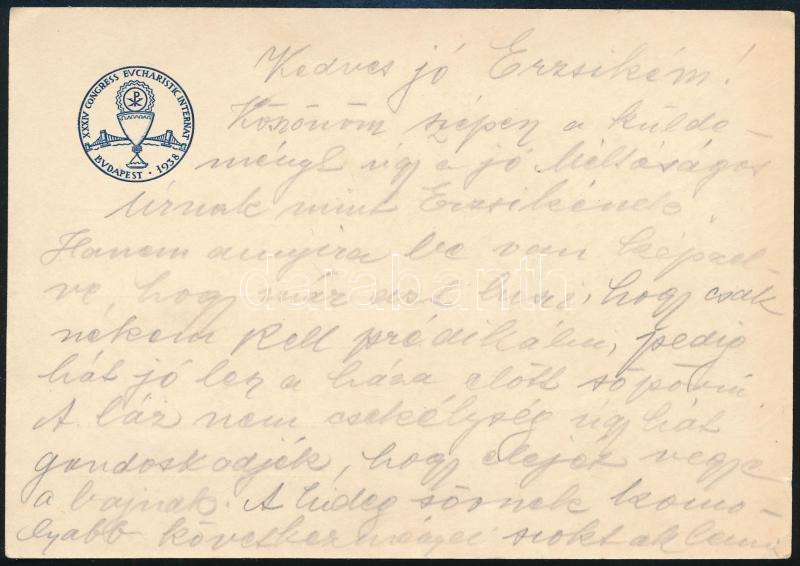 XXXIV CONGRESS EVCHARISTIC INTERNAT
BVDAPEST · 1938
Kedves jó Erzsikém!
Köszönöm szépen a külde-
ményt úgy a jó Méltóságos
Úrnak mint Erzsikének.
Hanem annyira be van képzel-
ve, hogy már azt hiszi, hogy csak
nékem kell prédikálni, pedig
hát jó lesz a háza előtt söpörni
A láz nem csekélység úgy hát
gondoskodjék, hogy elejét vegye
a bajnak. A hideg sörnek komo-
lyabb következményei szoktak lenni
darabanth